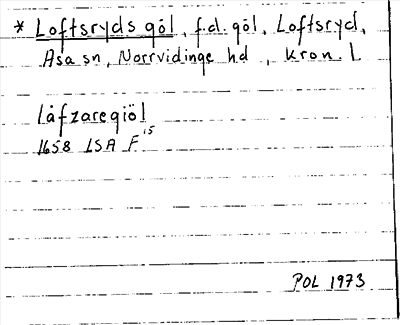 * Loftsryds göl, f.d. göl, Loftsryd,
Asa sn, Norrvidinge hd, Kron. l.
Låfzaregiöl
1658 LSA F 15
POL 1973